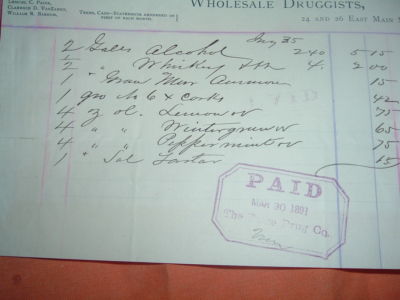 Lemuel C. Paine,
Clarence D. VanZandt,
William B. Barron,
Terms, Cash—Statements rendered
first of each month.
Wholesale Druggists,
24 and 26 East Main S
2 Galls Alcohol 240 5 15
1/2 " Whiskey 4. 2 00
1 " 15
1 gro 6 x Corks 42
4 oz ol. Lemon 75
4 " " Wintergreen 65
4 " " Peppermint 75
1 " Sal Tartar 15
PAID
PAID
MAR 30 1891
The Paine Drug Co.